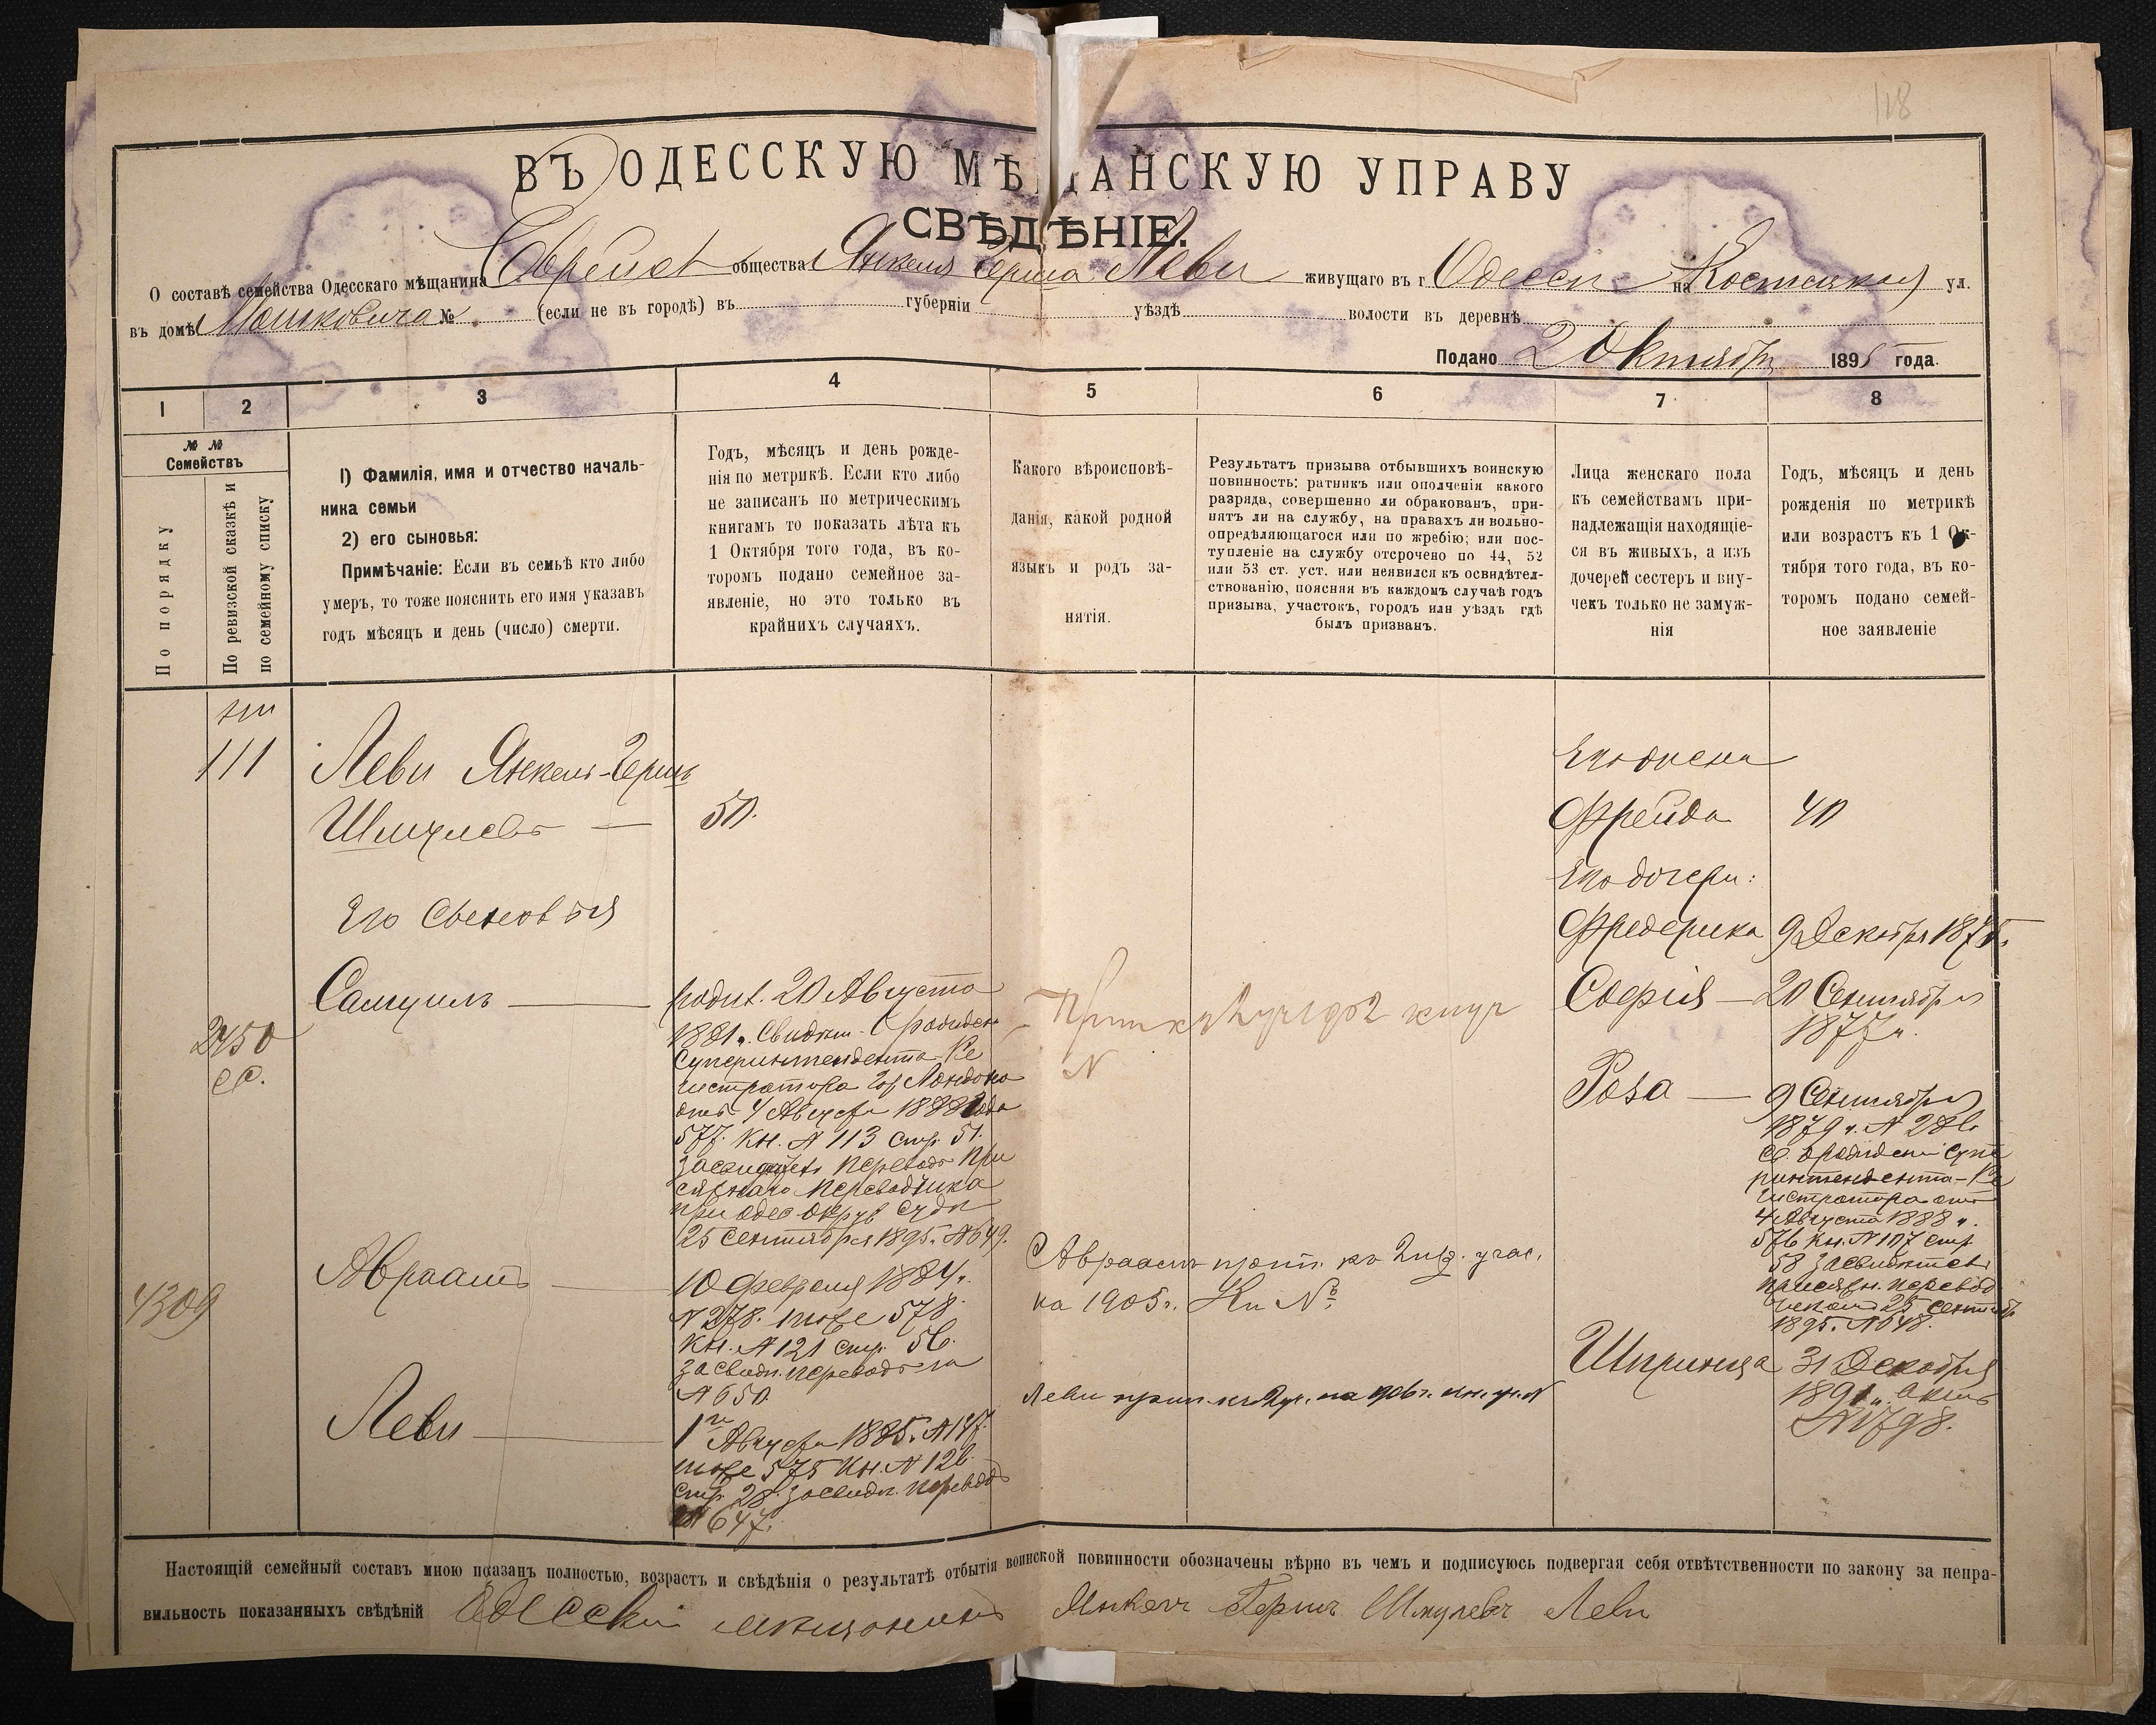 118
ВЪ ОДЕССКУЮ МѢЩАНСКУЮ УПРАВУ
СВѢДѢНІЕ.
О составѣ семейства Одесскаго мѣщанина Еврейск общества Янкеля Герша Леви живущаго въ г. Одессѣ на ул.
въ домѣ Мошковича № (если не въ городѣ) въ губерніи уѣздѣ волости въ деревнѣ
Подано 2 Октября 1895 года.
1 2 3 4 5 6 7 8
№ №
Семействъ
По порядку
По ревизской сказкѣ и
по семейному списку
1) Фамилія, имя и отчество началь-
ника семьи
2) его сыновья:
Примѣчаніе: Если въ семьѣ кто либо
умеръ, то тоже пояснить его имя указавъ
годъ мѣсяцъ и день (число) смерти.
Годъ, мѣсяцъ и день рожде-
нія по метрикѣ. Если кто либо
не записанъ по метрическимъ
книгамъ то показать лѣта къ
1 Октября того года, въ ко-
торомъ подано семейное за-
явленіе, но это только въ
крайнихъ случаяхъ.
Какого вѣроисповѣ-
данія, какой родной
языкъ и родъ за-
нятія.
Результатъ призыва отбывшихъ воинскую
повинность: ратникъ или ополченія какого
разряда, совершенно ли обракованъ, при-
нятъ ли на службу, на правахъ ли вольно-
опредѣляющагося или по жребію; или пос-
тупленіе на службу отсрочено по 44, 52
или 53 ст. уст. или неявился къ освидѣтел-
ствованію, поясняя въ каждомъ случаѣ годъ
призыва, участокъ, городъ или уѣздъ гдѣ
былъ призванъ.
Лица женскаго пола
къ семействамъ при-
надлежащія находящіе-
ся въ живыхъ, а изъ
дочерей сестеръ и вну-
чекъ только не замуж-
нія
Годъ, мѣсяцъ и день
рожденія по метрикѣ
или возрастъ къ 1 Ок-
тября того года, въ ко-
торомъ подано семей-
ное заявленіе
111
Леви Янкель-Гершъ
Шмулевъ — 50.
Его Сыновья
Самуилъ —
2450
СС.
родил. 20 Августа
1881 г. Свидѣт. о рожден
Суперинтендента-Ре
гистратора гор Лондона
отъ 4 Августа 1888 года
577. Кн. № 113 стр. 51.
засвидѣт. переводъ При
сяжнаго переводчика
при Одес Окруж Судѣ
25 Сентября 1895 г. № 649.
4309
Авраамъ —
10 Февраля 1884 г.
№ 278. тоже 578.
Кн. № 121 стр. 56.
засвидѣт. переводъ за
№ 650.
Леви —
1го Августа 1885 г. № 147.
тоже 575 Кн. № 126.
стр. 28. засвидѣт. переводъ
№ 647.
N
Авраамъ прип. къ 2 пр. учас.
на 1905 г. Кн №
Леви прип. къ 2 уч. на 906 г. кн. №
Его жена
Фрейда 40
Его дочери:
Фредерика 9 Декабря 1875 г.
Софія — 20 Сентября
1877 г.
Роза — 9 Сентября
1879 г. № 286
св. о рожденіи Супе
ринтендента-Ре
гистратора отъ
4 Августа 1888 г.
576 Кн. № 107 стр
58 засвидѣтел.
присяжн. перевод
чикомъ 25 Сентябр
1895 г. № 648.
Шпринца 31 Декабря
1891 г. актъ
№ 1798.
Настоящій семейный составъ мною показанъ полностью, возрастъ и свѣдѣнія о результатѣ отбытія воинской повинности обозначены вѣрно въ чемъ и подписуюсь подвергая себя отвѣтственности по закону за непра-
вильность показанныхъ свѣдѣній Одескій мѣщанинъ Янкель Гершъ Шмулевъ Леви